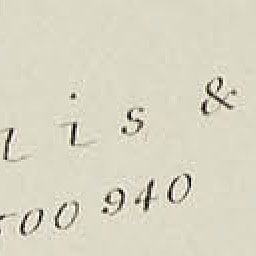 lis &
500 940